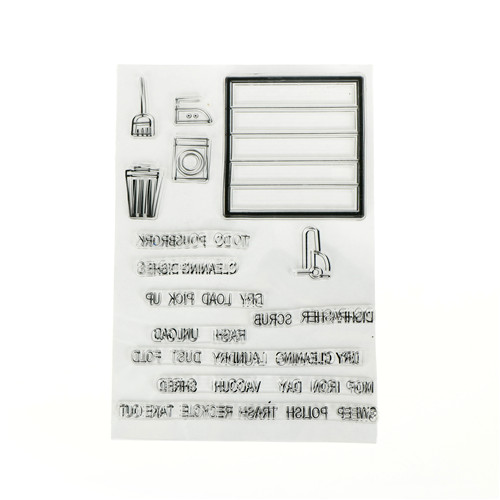 TO DO HOUSEWORK
CLEANING DISHES
DRY LOAD PICK UP
DISHWASHER SCRUB
WASH UNLOAD
DRY CLEANING LAUNDRY DUST FOLD
MOP IRON DAY VACUUM SHRED
SWEEP POLISH TRASH RECYCLE TAKE OUT